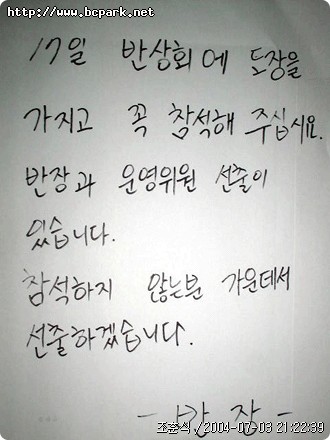 http://www.bcpark.net
17일 반상회에 도장을
가지고 꼭 참석해 주십시요.
반장과 운영위원 선출이
있습니다.
참석하지 않는분 가운데서
선출하겠습니다.
- 반 장 -
조훈식 / 2004-07-03 21:22:39